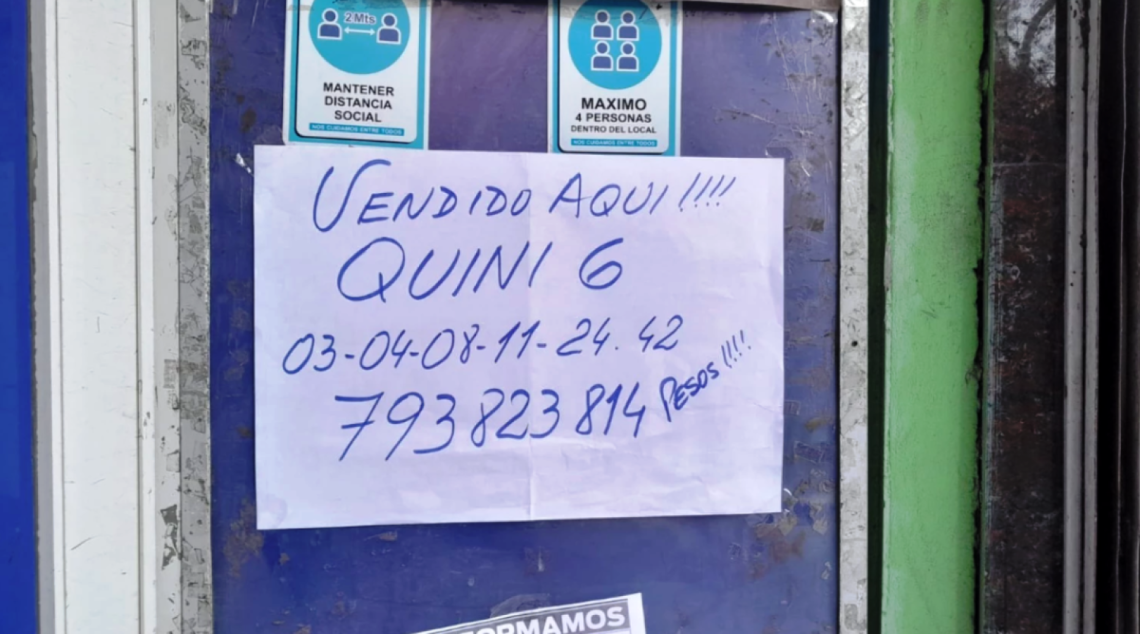 2 Mts
MANTENER
DISTANCIA
SOCIAL
NOS CUIDAMOS ENTRE TODOS
MAXIMO
4 PERSONAS
DENTRO DEL LOCAL
NOS CUIDAMOS ENTRE TODOS
VENDIDO AQUI !!!!
QUINI 6
03-04-08-11-24.42
793823814 PESOS !!!!